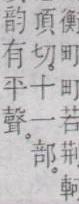 衡町町若荆軻
頂切十一部
韵有平聲